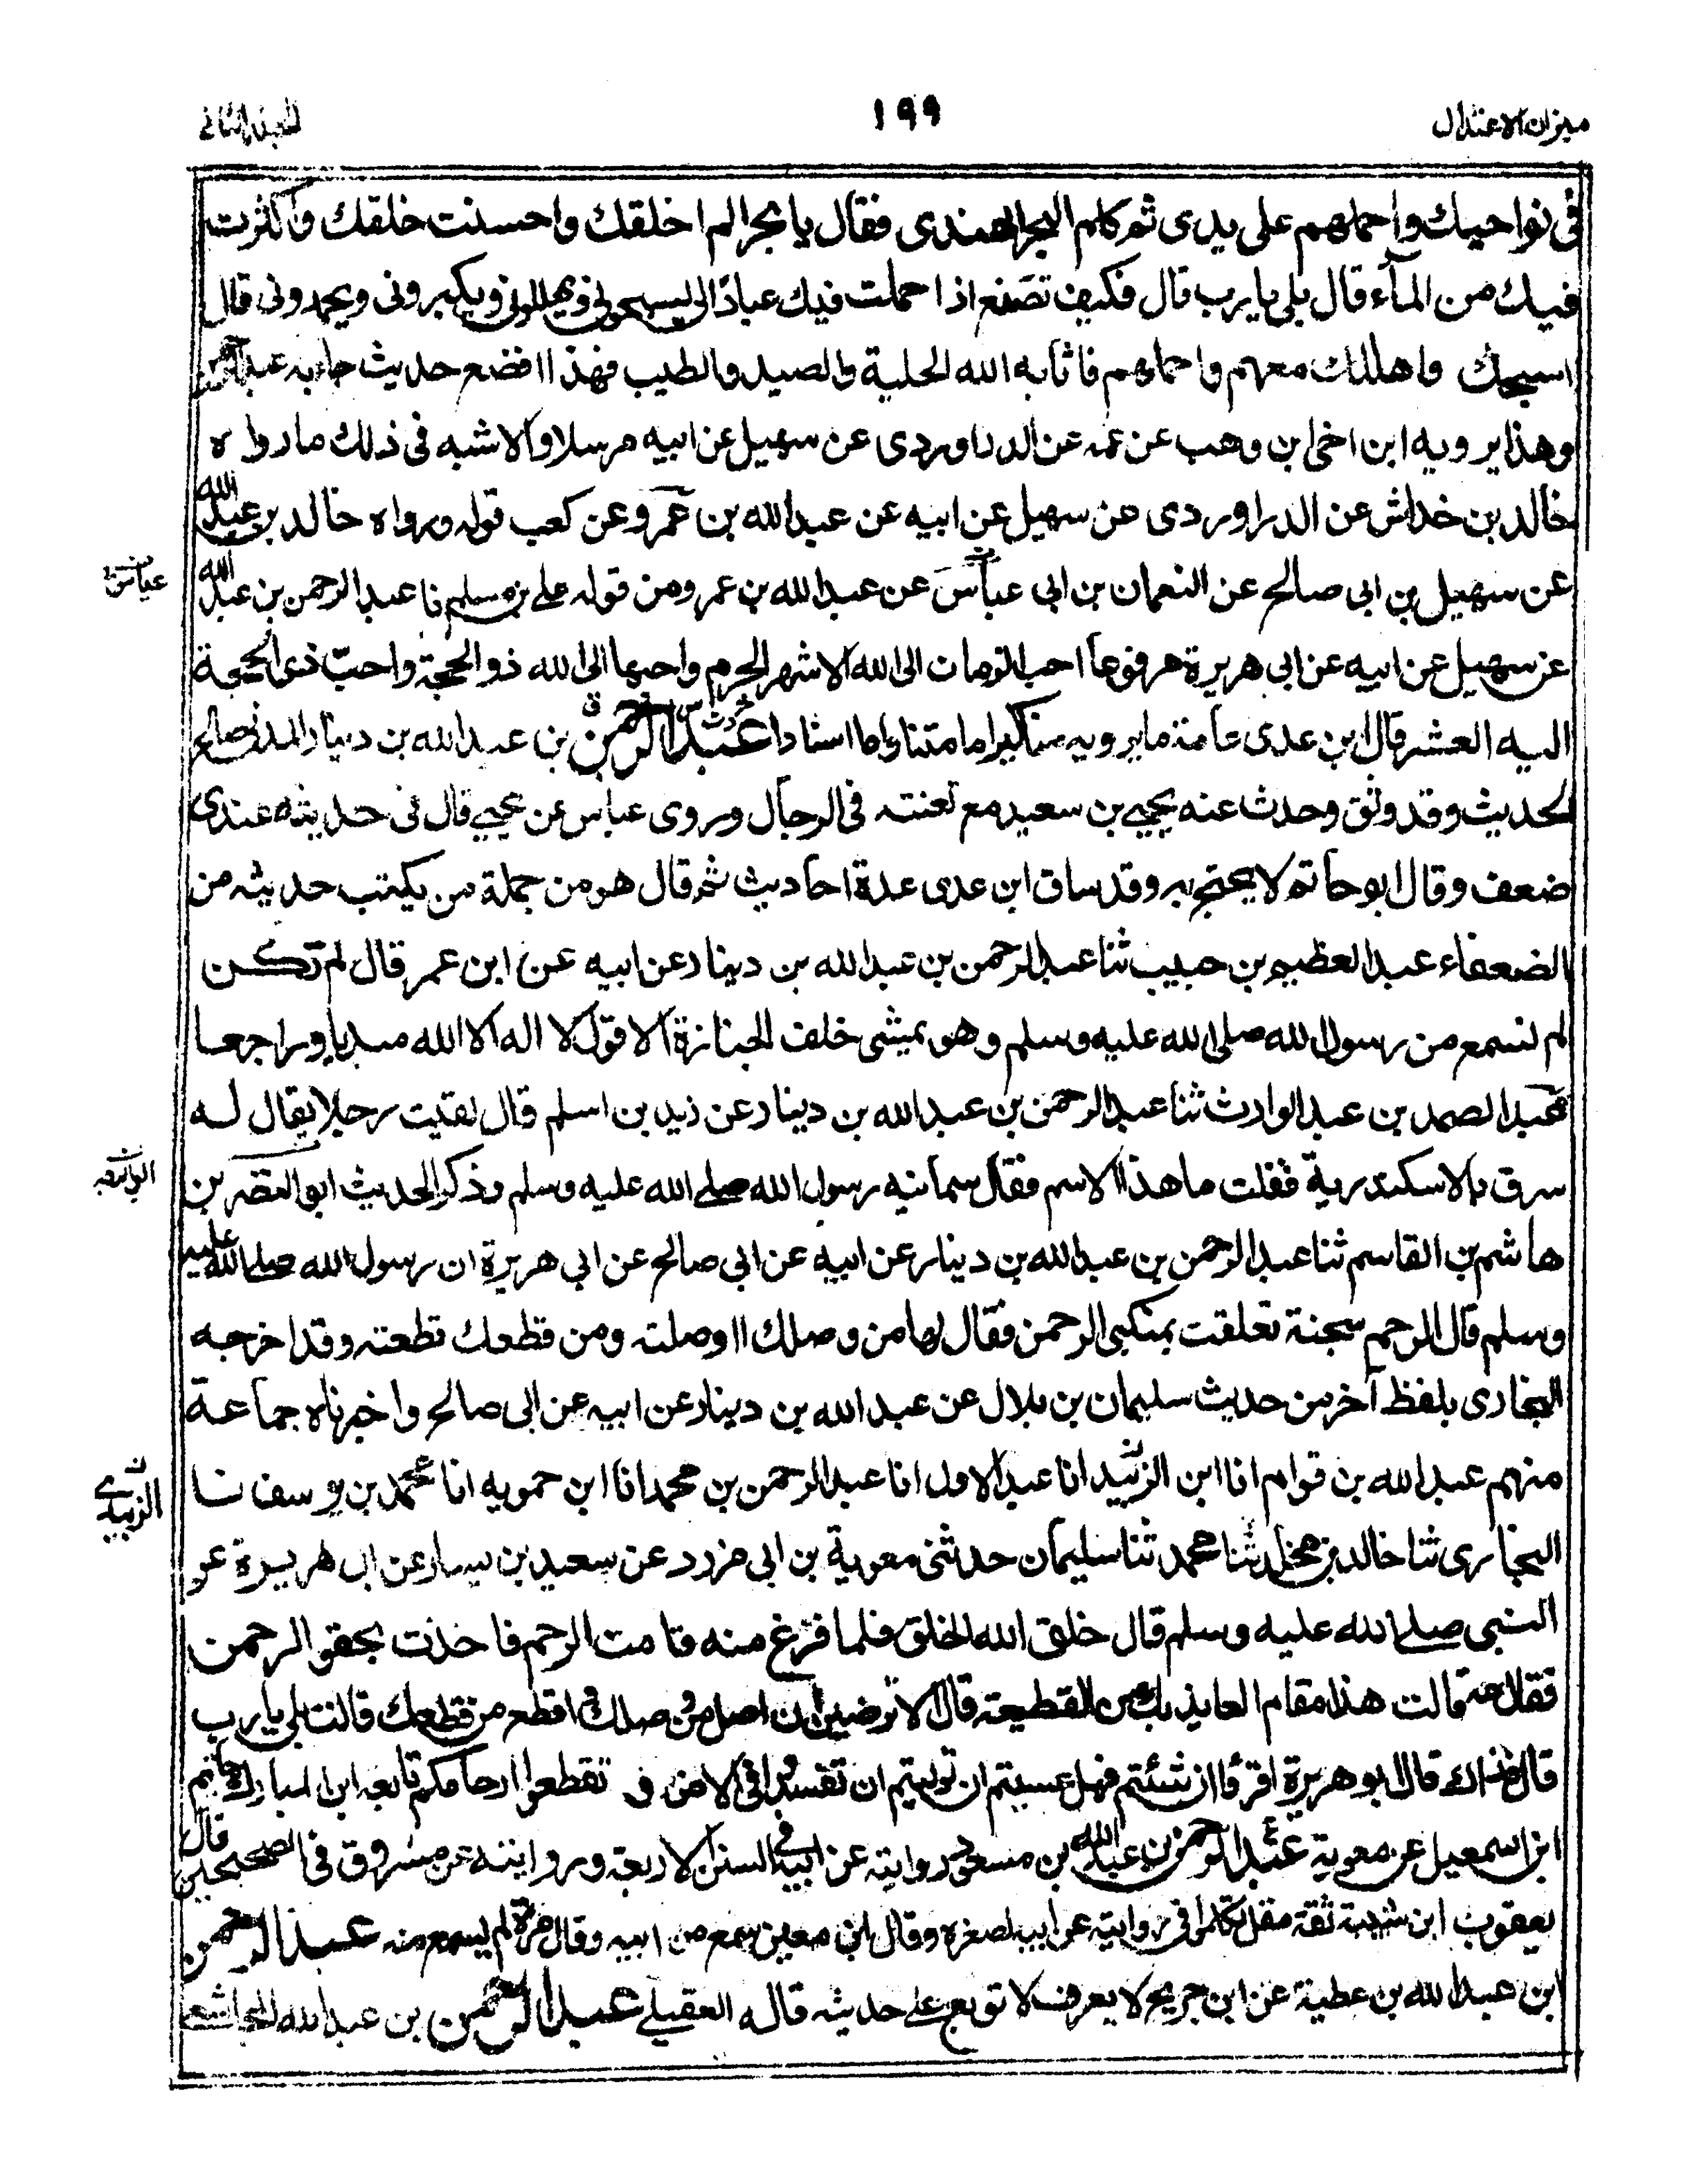 ميزان الاعتدال
١٩٩
المجلد الثاني
فى نواحيك واحملهم على يدى ثم كلم البحر الهندى فقال يا بحر الم اخلقك واحسنت خلقك واكثرت
فيك من المآء قال بلى يا رب قال فكيف تصنع اذا حملت فيك عبادًا لى يسبحونى ويهللونى ويكبرونى ويحمدونى قال
اسبحك واهللك معهم واحملهم فاثابه الله الحلية والصيد والطيب فهذا افضع حديث جاء به عبد الرحمن
وهذا يرويه ابن اخى ابن وهب عن عمه عن الدراوردى عن سهيل عن ابيه مرسلا والاشبه فى ذلك ما رواه
خالد بن خداش عن الدراوردى عن سهيل عن ابيه عن عبد الله بن عمرو عن كعب قوله ورواه خالد بن عبد الله
عن سهيل بن ابى صالح عن النعمان بن ابى عباس عن عبد الله بن عمرو من قوله على بن مسلم نا عبد الرحمن بن عبد الله
عياش
عن سهيل عن ابيه عن ابى هريرة مرفوعا احب الى الله الاشهر الحرم واحبها الى الله ذو الحجة واحبّ ذى الحجة
اليه العشر قال ابن عدى عامة ما يرويه مناكير اما متنا واما اسنادا عبد الرحمن بن عبد الله بن دينار المدنى صالح
الحديث وقد وثق وحدث عنه يحيى بن سعيد مع تعنته فى الرجال وروى عباس عن يحيى قال فى حديثه عندى
ضعف وقال ابو حاتم لا يحتج به وقد ساق ابن عدى عدة احاديث ثم قال هو من جملة من يكتب حديثه من
الضعفاء عبد العظيم بن حبيب ثنا عبد الرحمن بن عبد الله بن دينار عن ابيه عن ابن عمر قال لم تكن
لم نسمع من رسول الله صلى الله عليه وسلم وهو يمشى خلف الجنازة الا قول لا اله الا الله مبديا وراجعا
عبد الصمد بن عبد الوارث ثنا عبد الرحمن بن عبد الله بن دينار عن زيد بن اسلم قال لقيت رجلا يقال له
سرق بالاسكندرية فقلت ما هذا الاسم فقال سمانيه رسول الله صلى الله عليه وسلم وذكر الحديث ابو النضر بن
هاشم بن القاسم ثنا عبد الرحمن بن عبد الله بن دينار عن ابيه عن ابى صالح عن ابى هريرة ان رسول الله صلى الله عليه
وسلم قال الرحم شجنة تعلقت بمنكبى الرحمن فقال لها من وصلك اوصلته ومن قطعك قطعته وقد اخرجه
البخارى بلفظ آخر من حديث سليمان بن بلال عن عبد الله بن دينار عن ابيه عن ابى صالح واخبرناه جماعة
منهم عبد الله بن قوام انا ابن الزبيد انا عبد الاول انا عبد الرحمن بن محمد انا ابن حمويه انا محمد بن يوسف نا
الزبيدى
البخارى ثنا خالد بن مخلد ثنا محمد ثنا سليمان حدثنى معوية بن ابى مزرد عن سعيد بن يسار عن ابى هريرة عن
النبى صلى الله عليه وسلم قال خلق الله الخلق فلما فرغ منه قامت الرحم فاخذت بحقو الرحمن
فقال مه قالت هذا مقام العايذ بك من القطيعة قال الا ترضين ان اصل من وصلك واقطع من قطعك قالت بلى يا رب
قال فذاك قال ابو هريرة اقرؤا ان شئتم فهل عسيتم ان توليتم ان تفسدوا فى الارض و تقطعوا ارحامكم تابعه ابن المبارك وحاتم
ابن اسمعيل عن معوية عبد الرحمن بن عبد الله بن مسعود روايته عن ابيه فى السنن الاربعة وروايته عن مسروق فى الصحيحين قال
يعقوب ابن شيبة ثقة مقل تكلموا فى روايته عن ابيه لصغره وقال ابن معين سمع من ابيه وقال مرة لم يسمع منه عبد الرحمن
ابن عبد الله بن عطية عن ابن جريج لا يعرف لا توبع على حديثه قاله العقيلى عبد الرحمن بن عبد الله المجاشعى